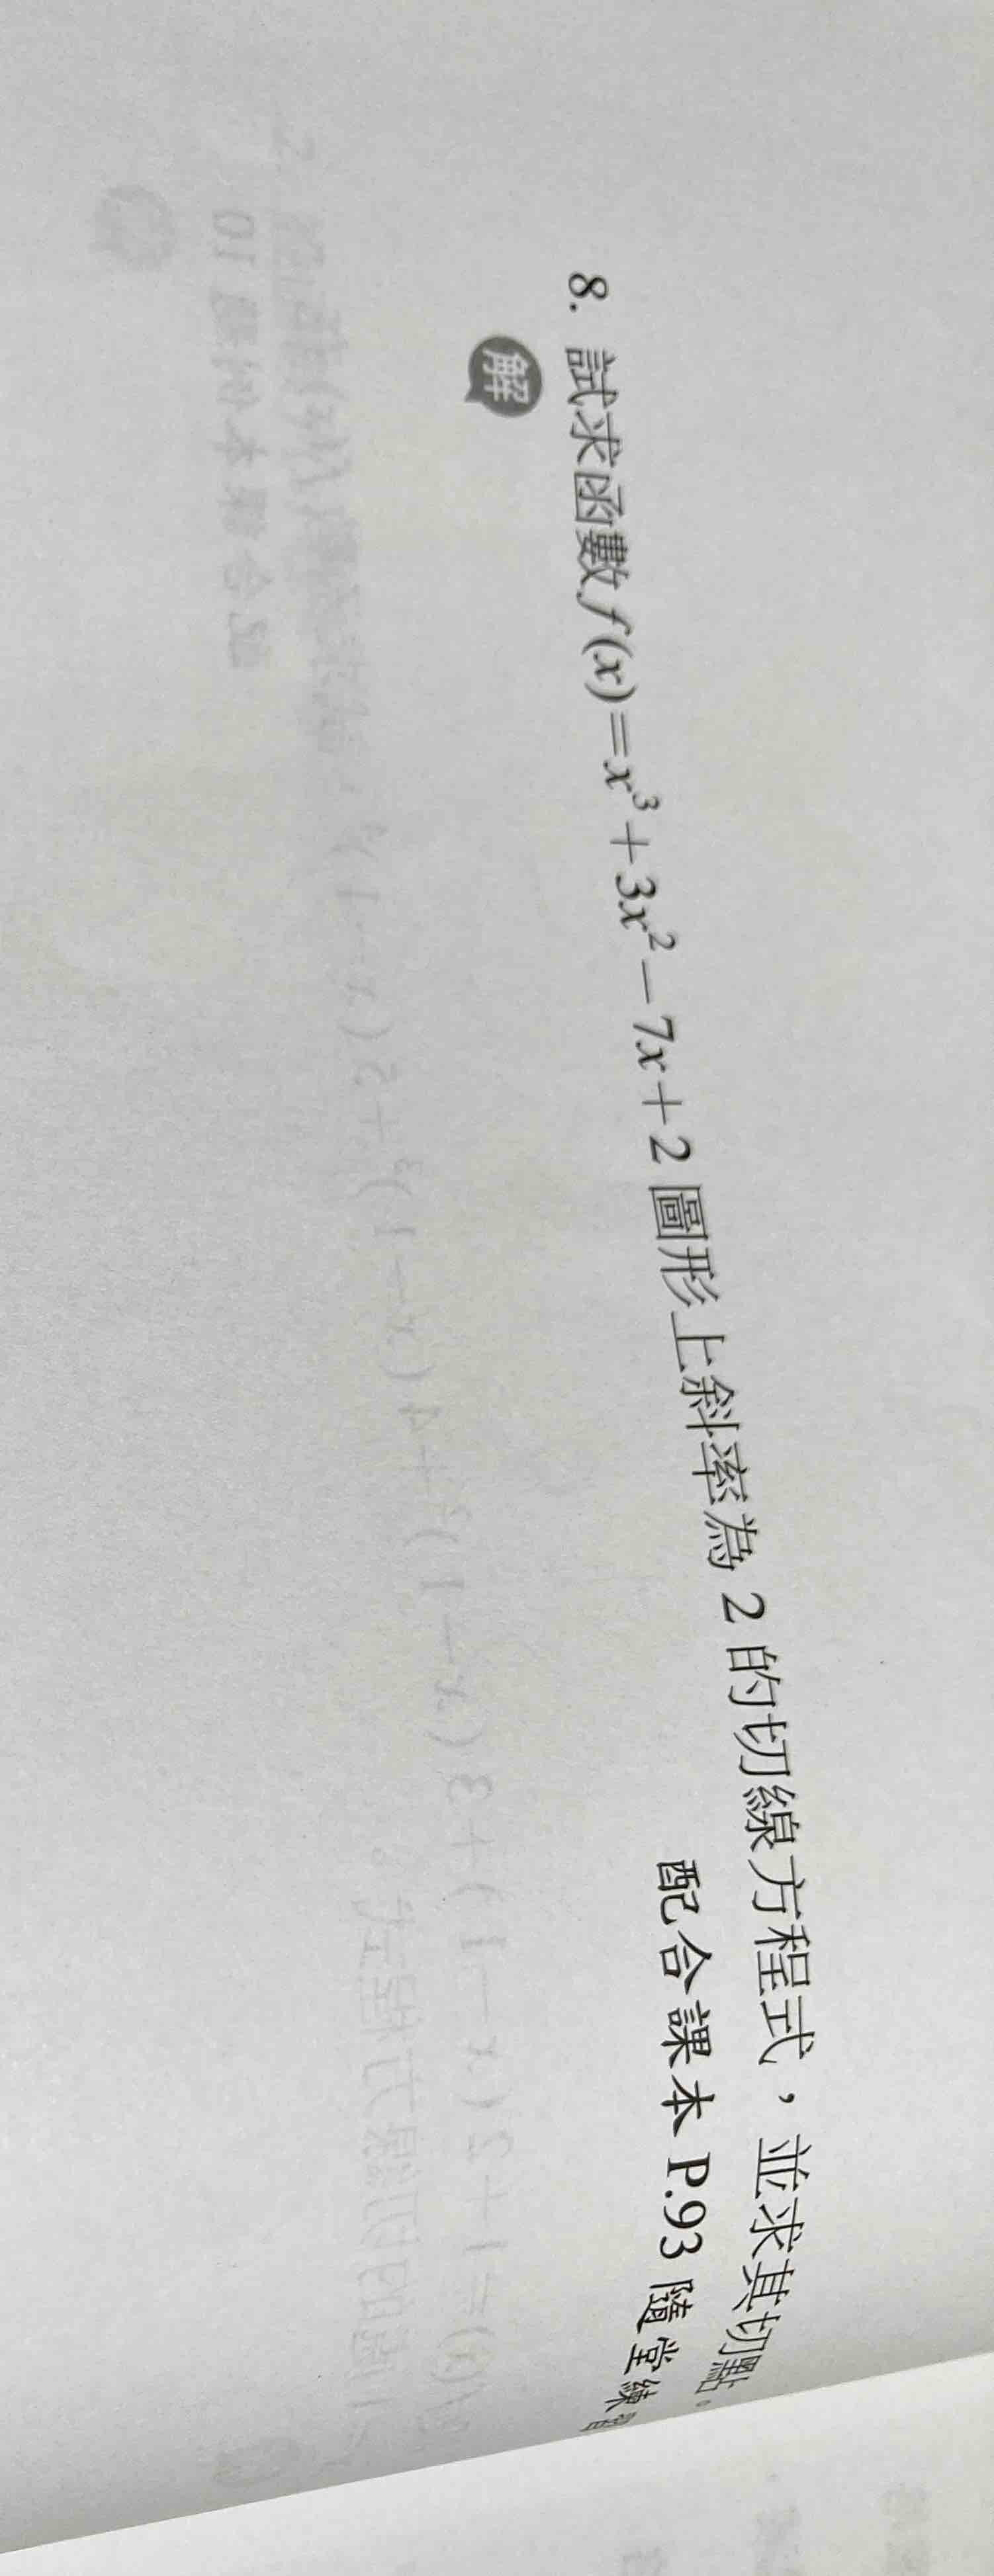 8. 試求函數 f(x)=x³+3x²−7x+2 圖形上斜率為 2 的切線方程式，並求其切點。
配合課本 P.93 隨堂練習
解